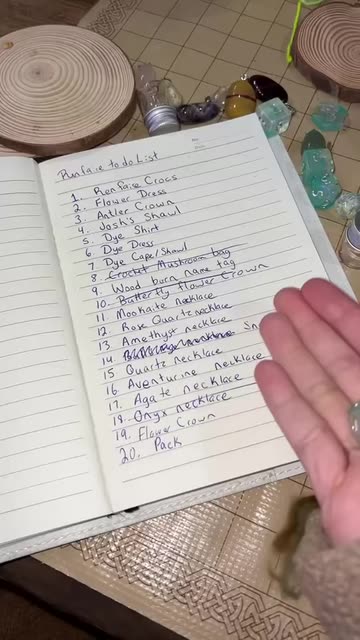 Renfaire to do List
No.
1. Renfaire Crocs
2. Flower Dress
3. Antler Crown
4. Josh's Shawl
5. Dye Shirt
6. Dye Dress
7. Dye Cape/Shawl
8. Crochet Mushroom bag
9. Wood burn name tag
10. Butterfly flower Crown
11. Mookaite necklace
12. Rose Quartz necklace
13. Amethyst necklace
14. necklace Sn
15 Quartz necklace
16. Aventurine necklace
17. Agate necklace
18. Onyx necklace
19. Flower Crown
20. Pack